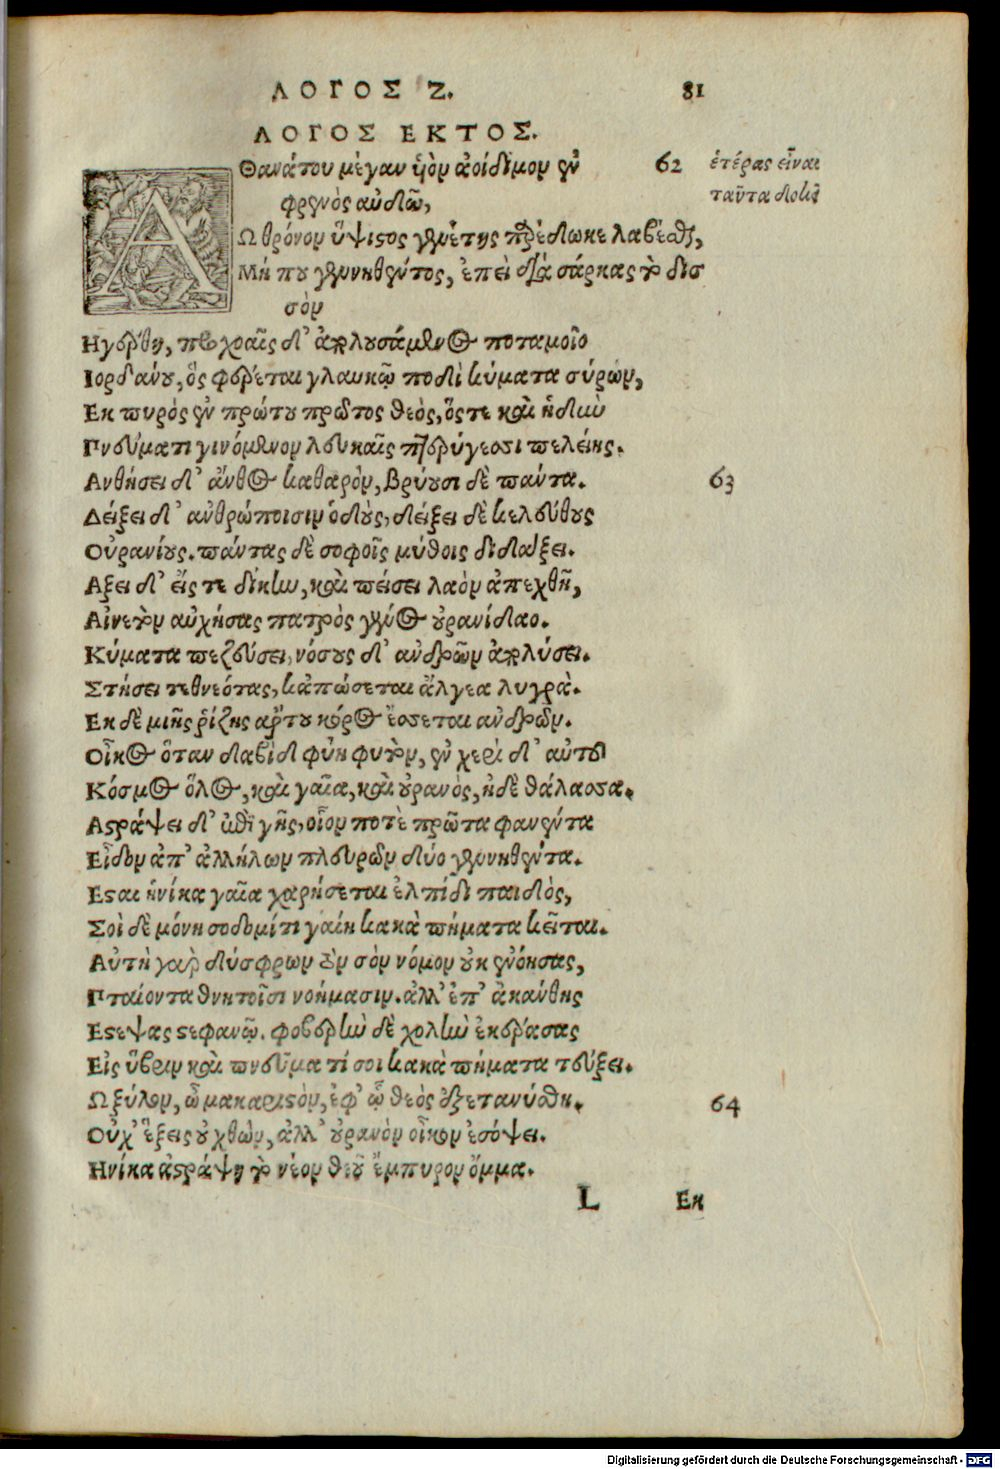 ΛΟΓΟΣ Ζ. 81
ΛΟΓΟΣ ΕΚΤΟΣ.
ΑΘανάτου μέγαν ἡὸν ἀοίδιμον ἐν 62 ἑτέρας εἶναι
φρενὸς αὐδῶ, ταῦτα δοκεῖ
Ω θρόνον ὕψιστος γενέτης παρέδωκε λαβέσθαι,
Μή που γενηθέντος, ἐπεὶ διὰ σάρκας τὸ δισ
σὸν
Ηγέρθη, προχοαῖς δ' ἀπολουσάμενος ποταμοῖο
Ιορδάνου, ὃς φέρεται γλαυκῷ ποδὶ κύματα σύρων,
Εκ πυρὸς ἐν πρώτου πρῶτος θεὸς, ὅς τε καὶ ἡδὺ
Πνεύματι γινόμενον λευκαῖς πτερύγεσσι πελείης.
Ανθήσει δ' ἄνθος καθαρὸν, βρύουσι δὲ πάντα. 63
Δείξει δ' ἀνθρώποισιν ὁδοὺς, δείξει δὲ κελεύθους
Οὐρανίους. πάντας δὲ σοφοῖς μύθοις διδάξει.
Αξει δ' εἴς τε δίκην, καὶ πείσει λαὸν ἀπεχθῆ,
Αἰνετὸν αὐχήσας πατρὸς γένος οὐρανίδαο.
Κύματα πεζεύσει, νόσους δ' ἀνδρῶν ἀπολύσει.
Στήσει τεθνεότας, κἀπώσεται ἄλγεα λυγρὰ.
Εκ δὲ μιῆς ῥίζης ἄρτου κόρος ἔσσεται ἀνδρῶν.
Οἶκος ὅταν δαβὶδ φύη φυτὸν, ἐν χερὶ δ' αὐτοῦ
Κόσμος ὅλος, καὶ γαῖα, καὶ οὐρανὸς, ἠδὲ θάλασσα.
Αστράψει δ' ἐπὶ γῆς, οἷον ποτὲ πρῶτα φανέντα
Εἶδον ἀπ' ἀλλήλων πλευρῶν δύο γενηθέντα.
Εσται ἡνίκα γαῖα χαρήσεται ἐλπίδι παιδὸς,
Σοὶ δὲ μόνη σοδομίτι γαίη κακὰ πήματα κεῖται.
Αὐτὴ γὰρ δύσφρων τὸν σὸν νόμον οὐκ ἐνόησας,
Πταίοντα θνητοῖσι νοήμασιν. ἀλλ' ἐπ' ἀκάνθης
Εστεψας στεφανῷ. φοβερὴν δὲ χολὴν ἐκέρασας
Εἰς ὕβριν καὶ πνεῦμα τί σοι κακὰ πήματα τεύξει.
Ω ξύλον, ὦ μακαριστὸν, ἐφ' ᾧ θεὸς ἐξετανύσθη. 64
Οὐχ' ἕξει σ' οὐ χθὼν, ἀλλ' οὐρανὸν οἶκον ἐσόψει.
Ηνίκα ἀστράψῃ τὸ νέον θεοῦ ἔμπυρον ὄμμα.
L Εκ
Digitalisierung gefördert durch die Deutsche Forschungsgemeinschaft - DFG